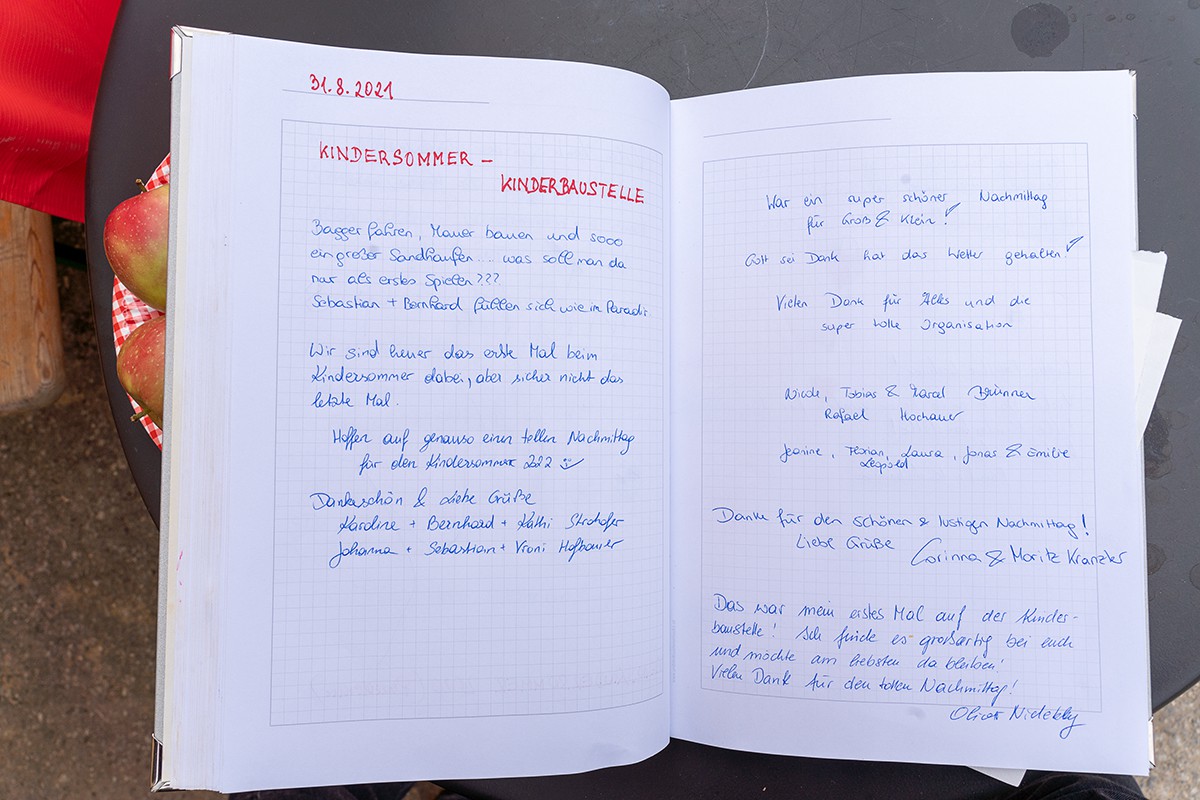 31.8.2021
KINDERSOMMER –
KINDERBAUSTELLE
Bagger fahren, Mauer bauen und sooo
ein großer Sandhaufen .... was soll man da
nur als erstes Spielen???
Sebastian + Bernhard fühlen sich wie im Paradis
Wir sind heuer das erste Mal beim
Kindersommer dabei, aber sicher nicht das
letzte Mal.
Hoffen auf genauso einen tollen Nachmittag
für den Kindersommer
Dankeschön & Liebe Grüße
Karoline + Bernhard + Kathi Strohofer
Johanna + Sebastian + Vroni Hofbauer
War ein super schöner Nachmittag
für Groß & Klein!
Gott sei Dank hat das Wetter gehalten!
Vielen Dank für Alles und die
super tolle Organisation
Nicole, Tobias & Marcel Brunner
Rafael Hochauer
Jeanine, Florian, Laura, Jonas & Emilie
Leopold
Danke für den schönen & lustigen Nachmittag!
Liebe Grüße Corinna & Moritz Kranzler
Das war mein erstes Mal auf der Kinder-
baustelle! Ich finde es großartig bei euch
und möchte am liebsten da bleiben!
Vielen Dank für den tollen Nachmittag!